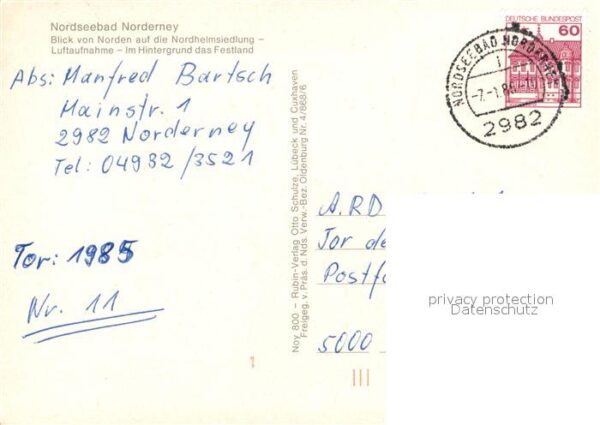 Nordseebad Norderney
Blick von Norden auf die Nordhelmsiedlung –
Luftaufnahme – Im Hintergrund das Festland
Abs: Manfred Bartsch
Mainstr. 1
2982 Norderney
Tel: 04932/3521
Tor: 1985
Nr. 11
1
Noy 800 – Rubin-Verlag Otto Schulze, Lübeck und Cuxhaven
Freigeg. v. Präs. d. Nds. Verw.-Bez. Oldenburg Nr. 4/868/6
DEUTSCHE BUNDESPOST
60
NORDSEEBAD NORDERNEY
2982
A.R.D
Tor de
Postf
5000
privacy protection
Datenschutz